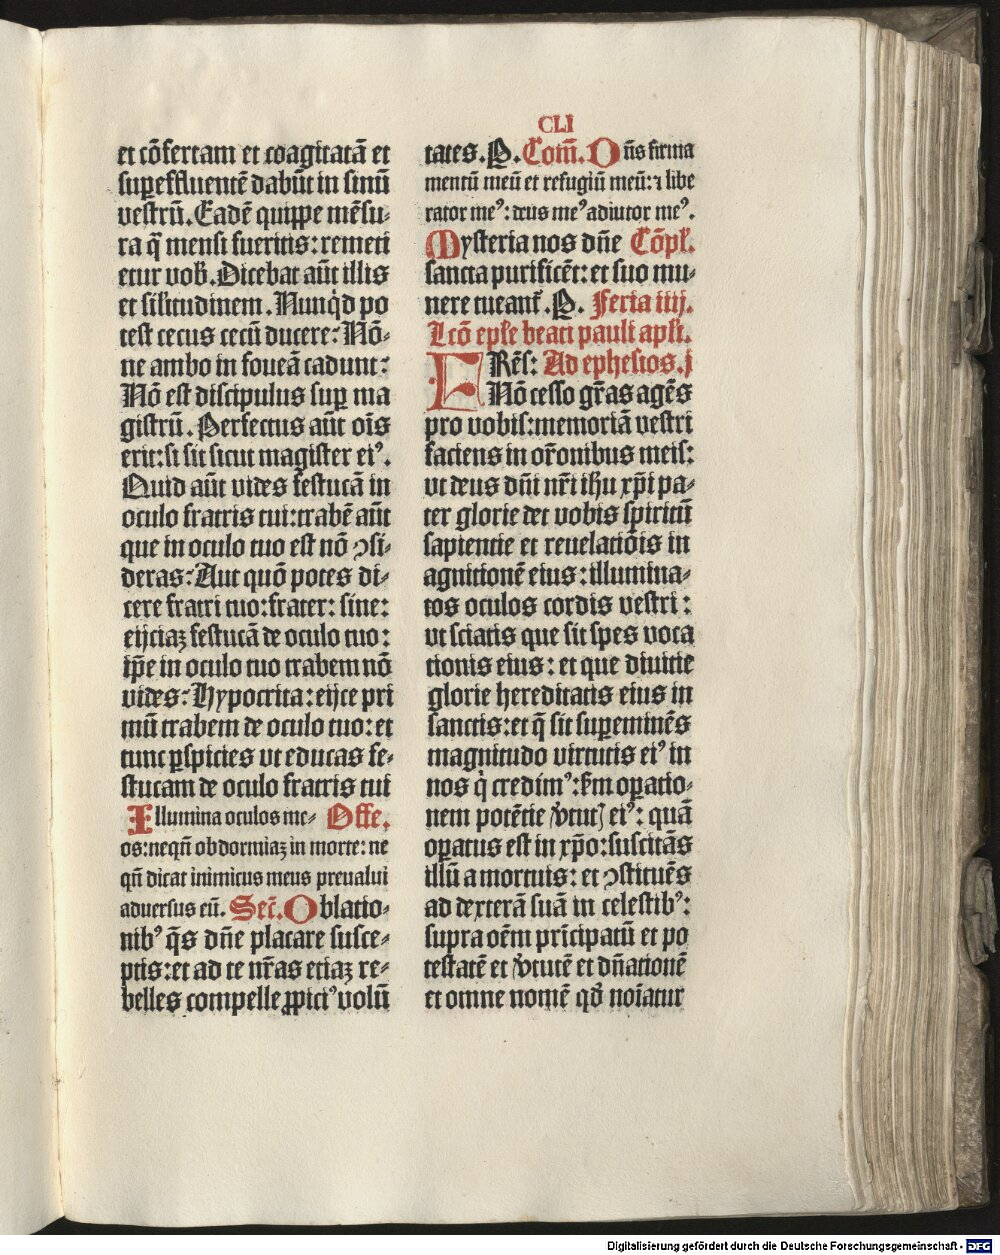 CLI
et cōfertam et coagitatā et
sup̲effluentē dabūt in sinū
vestrū. Eadē quippe mēsu⸗
ra q̄ mensi fueritis: remeti
etur vob̄. Dicebat aūt illis
et sil̄itudinem. Nunq̇d po
test cecus cecū ducere: Nō⸗
ne ambo in foueā cadunt:
Nō est discipulus sup̲ ma
gistrū. Perfectus aūt oīs
erit: si sit sicut magister eiꝰ.
Quid aūt vides festucā in
oculo fratris tui: trabē aūt
que in oculo tuo est nō ꝯsi⸗
deras: Aut quō potes di⸗
cere fratri tuo: frater: sine:
eijciaꝫ festucā de oculo tuo:
ip̄e in oculo tuo trabem nō
vides: Hypocrita: eijce pri
mū trabem de oculo tuo: et
tunc ꝑspicies vt educas fe⸗
stucam de oculo fratris tui
Illumina oculos me⸗ Offe.
os: neqn̄ obdormiaꝫ in morte: ne
qn̄ dicat inimicus meus preualui
aduersus eū. Sec̄. Oblatio⸗
nibꝰ q̄s dn̄e placare susce⸗
ptis: et ad te nr̄as etiaꝫ re⸗
belles compelle ꝓpiciꝰ volū
tates. P. Com̄. Dn̄s firma
mentū meū et refugiū meū: ⁊ libe
rator meꝰ: deus meꝰ adiutor meꝰ.
Mysteria nos dn̄e Cōpl̄.
sancta purificēt: et suo mu⸗
nere tueant᷑. P. Feria iiij.
Lcō ep̄le beati pauli apl̄i.
FRēs: Ad ephesios. j
Nō cesso gr̄as agēs
pro vobis: memoriā vestri
faciens in or̄onibus meis:
vt deus dn̄i nr̄i ih̄u xp̄i pa⸗
ter glorie det vobis spiritū
sapientie et reuelatiōis in
agnitionē eius: illumina⸗
tos oculos cordis vestri:
vt sciatis que sit spes voca
tionis eius: et que diuitie
glorie hereditatis eius in
sanctis: et q̄ sit sup̲eminēs
magnitudo virtutis eiꝰ in
nos q̇ credimꝰ: fm̄ oꝑatio⸗
nem potētie v̓tutꝭ eiꝰ: quā
oꝑatus est in xp̄o: suscitās
illū a mortuis: et ꝯstituēs
ad dexterā suā in celestibꝰ:
supra oēm prīcipatū et po
testatē et v̓tutē et dn̄ationē
et omne nomē qd̓ noīatur
Digitalisierung gefördert durch die Deutsche Forschungsgemeinschaft - DFG